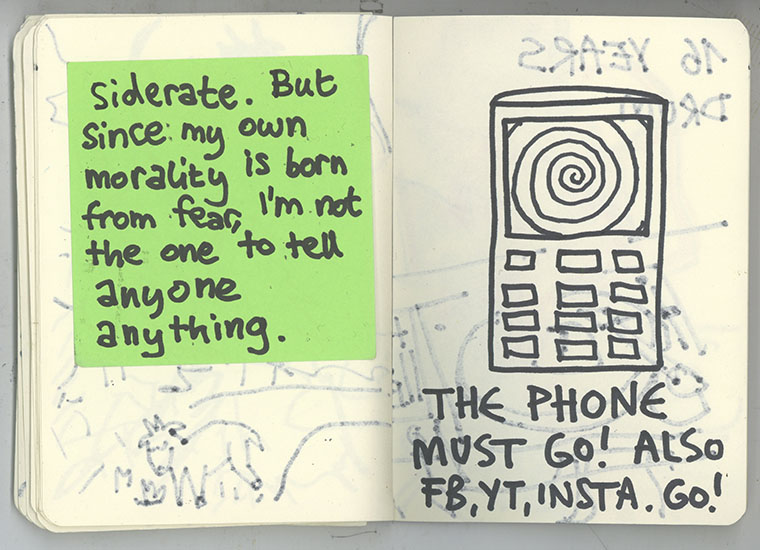 siderate. But
since my own
morality is born
from fear, I'm not
the one to tell
anyone
anything.
16 YEARS
THE PHONE
MUST GO! ALSO
FB, YT, INSTA. GO!